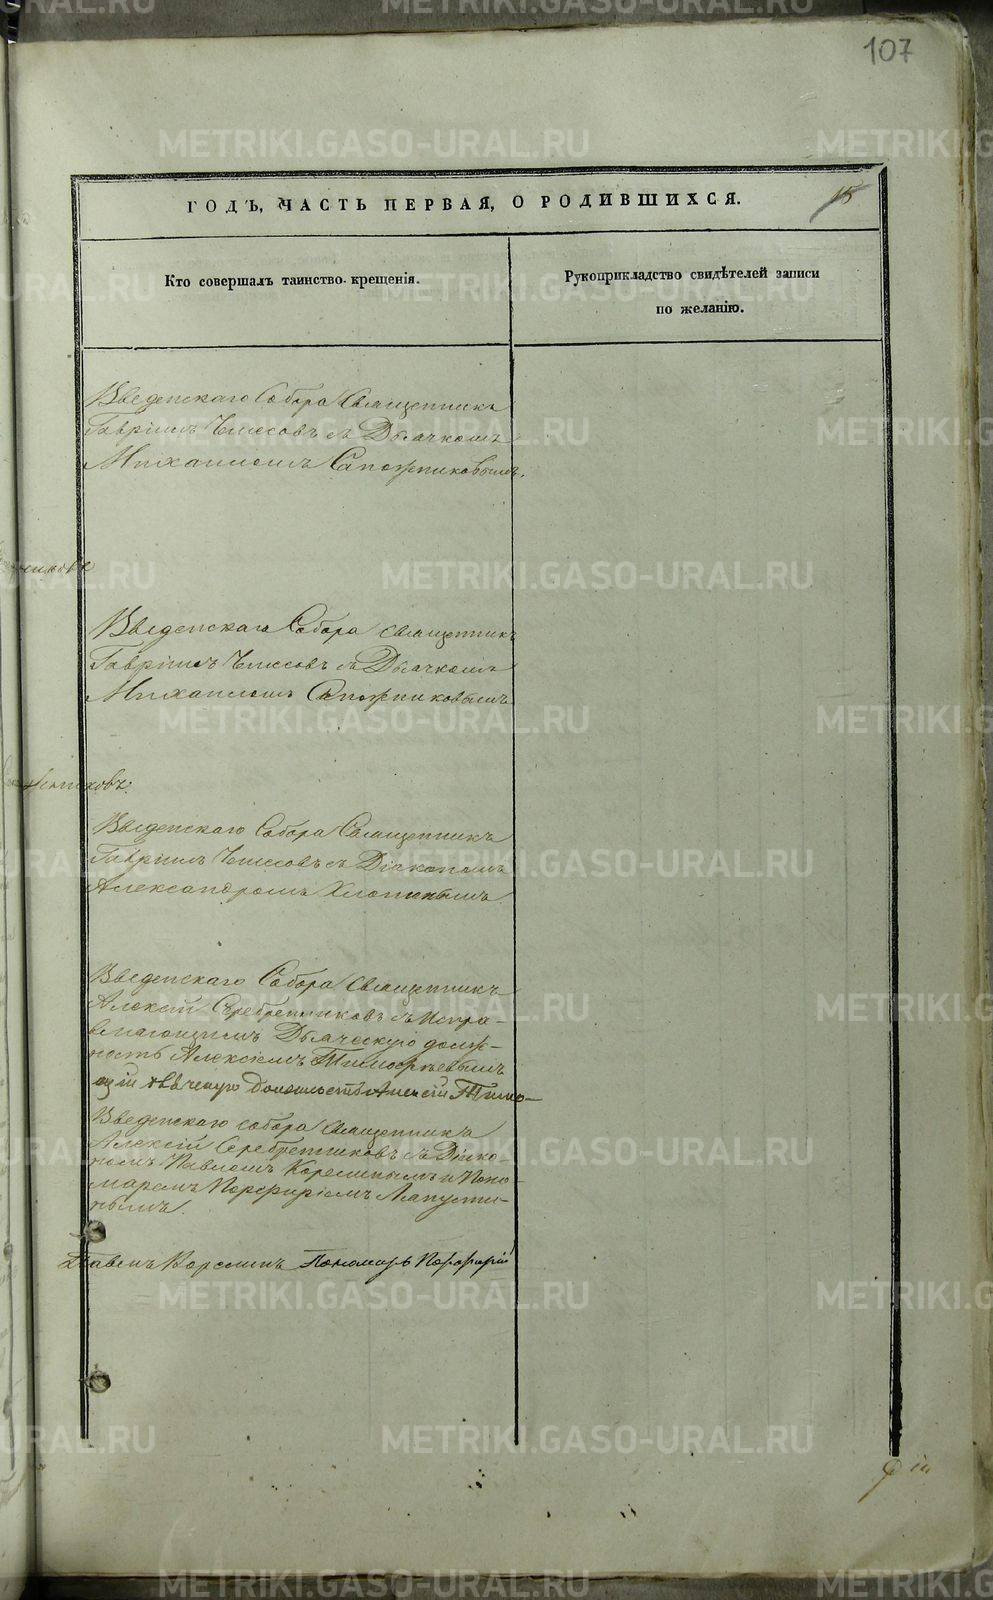 107
ГОДЪ, ЧАСТЬ ПЕРВАЯ, О РОДИВШИХСЯ.
15
Кто совершалъ таинство крещенія.
Рукоприкладство свидѣтелей записи
по желанію.
Введенскаго Собора Священникъ
Гавріилъ Чиссовъ съ Дьячкомъ
Михаиломъ Сапожниковымъ.
Введенскаго Собора Священникъ
Гавріилъ Чиссовъ съ Дьячкомъ
Михаиломъ Сапожниковымъ
Введенскаго Собора Священникъ
Гавріилъ Чиссовъ съ Діакономъ
Александромъ Хлопинымъ.
Введенскаго Собора Священникъ
Алексій Серебренниковъ съ Испра-
вляющимъ Дьяческую долж-
ность Алексіемъ Тимофѣевымъ
щій дьяческую Должность Алексій Тимо-
Введенскаго собора Священникъ
Алексій Серебренниковъ съ Діако-
номъ Павломъ Корелинымъ и Поно-
маремъ Порфиріемъ Лапусти-
нымъ.
Павелъ Корелинъ Пономарь Порфирій
METRIKI.GASO-URAL.RU